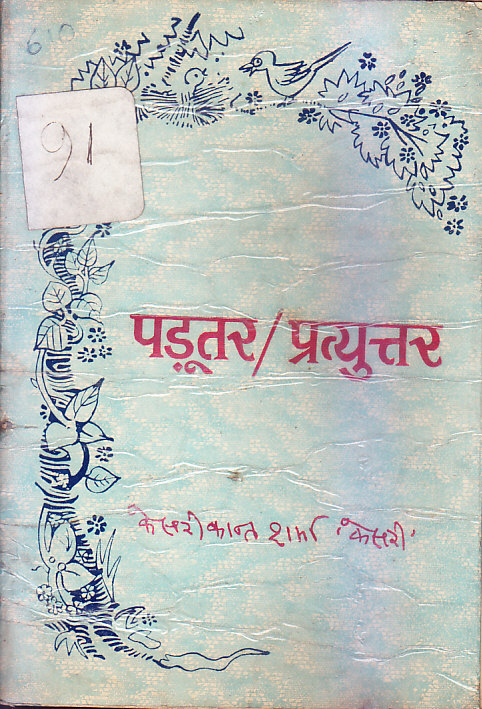 610
91
पड़ूतर/प्रत्युत्तर
केसरीकान्त शर्मा 'केसरी'